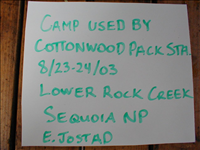 CAMP USED BY
COTTONWOOD PACK STA.
8/23-24/03
LOWER ROCK CREEK
SEQUOIA NP
E. JOSTAD